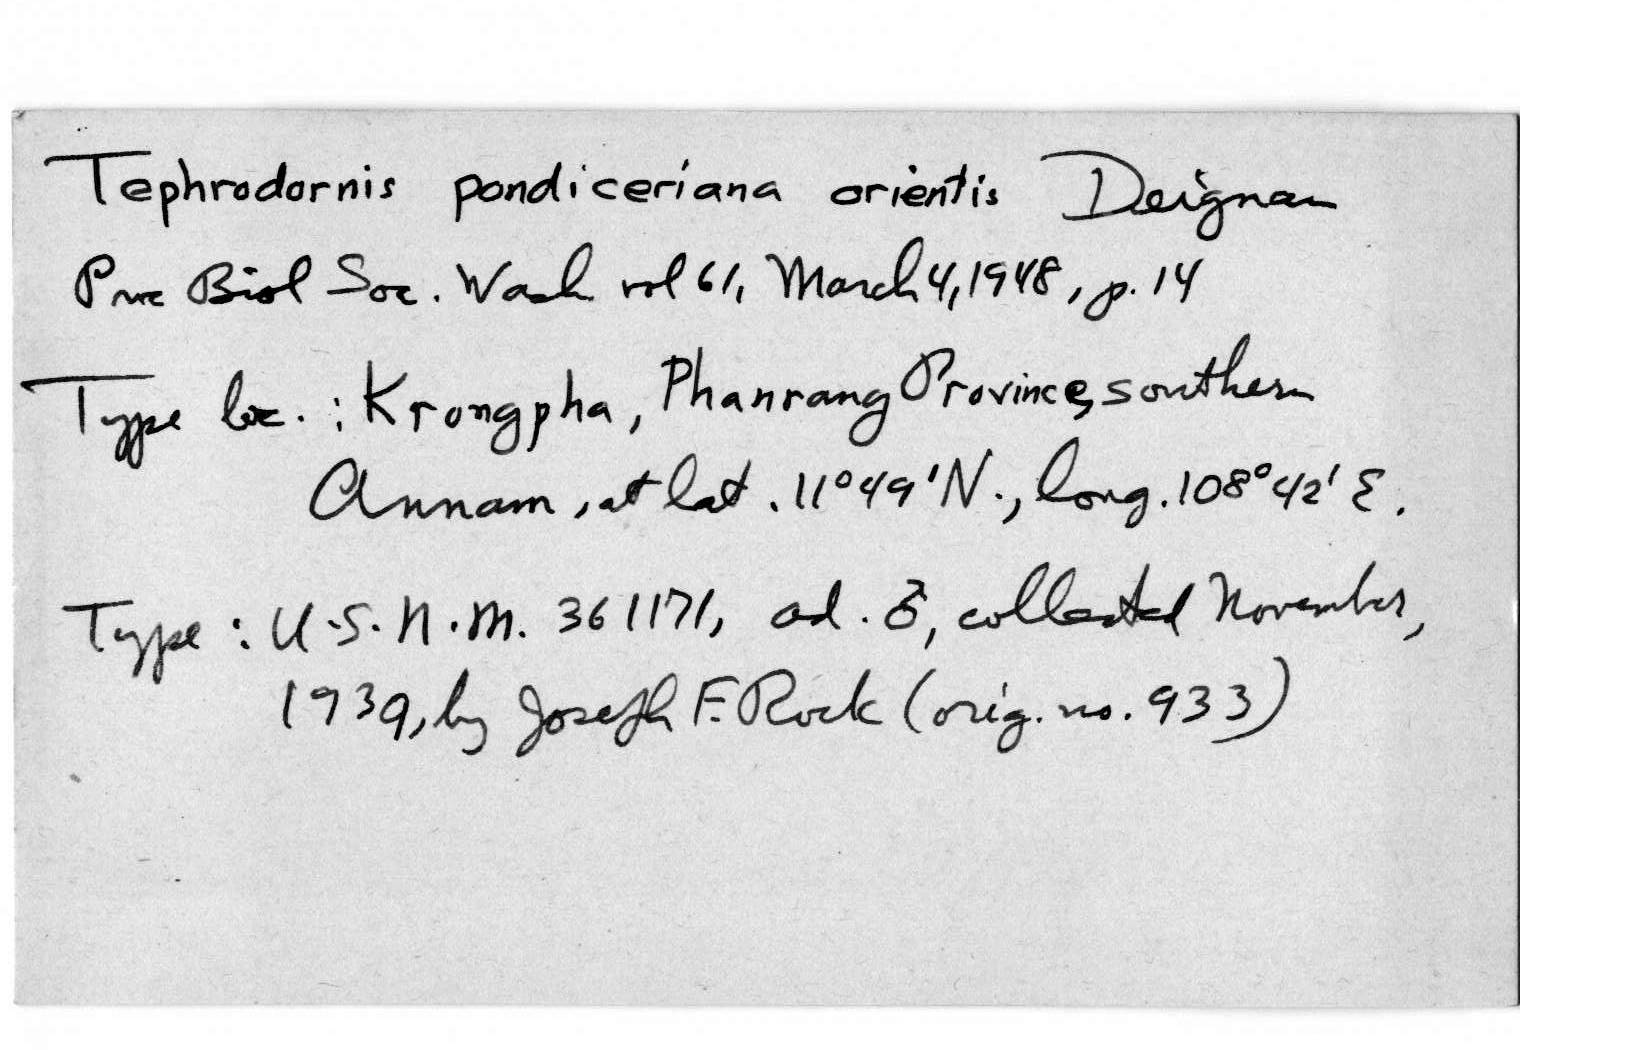 Tephrodornis pondiceriana orientis Deignan
Proc Biol Soc. Wash vol 61, March 4, 1948, p. 14
Type loc. : Krongpha, Phanrang Province, southern
Annam, at lat. 11°49'N., long. 108°42' E.
Type : U.S.N.M. 361171, ad. ♂, collected November,
1939, by Joseph F. Rock (orig. no. 933)